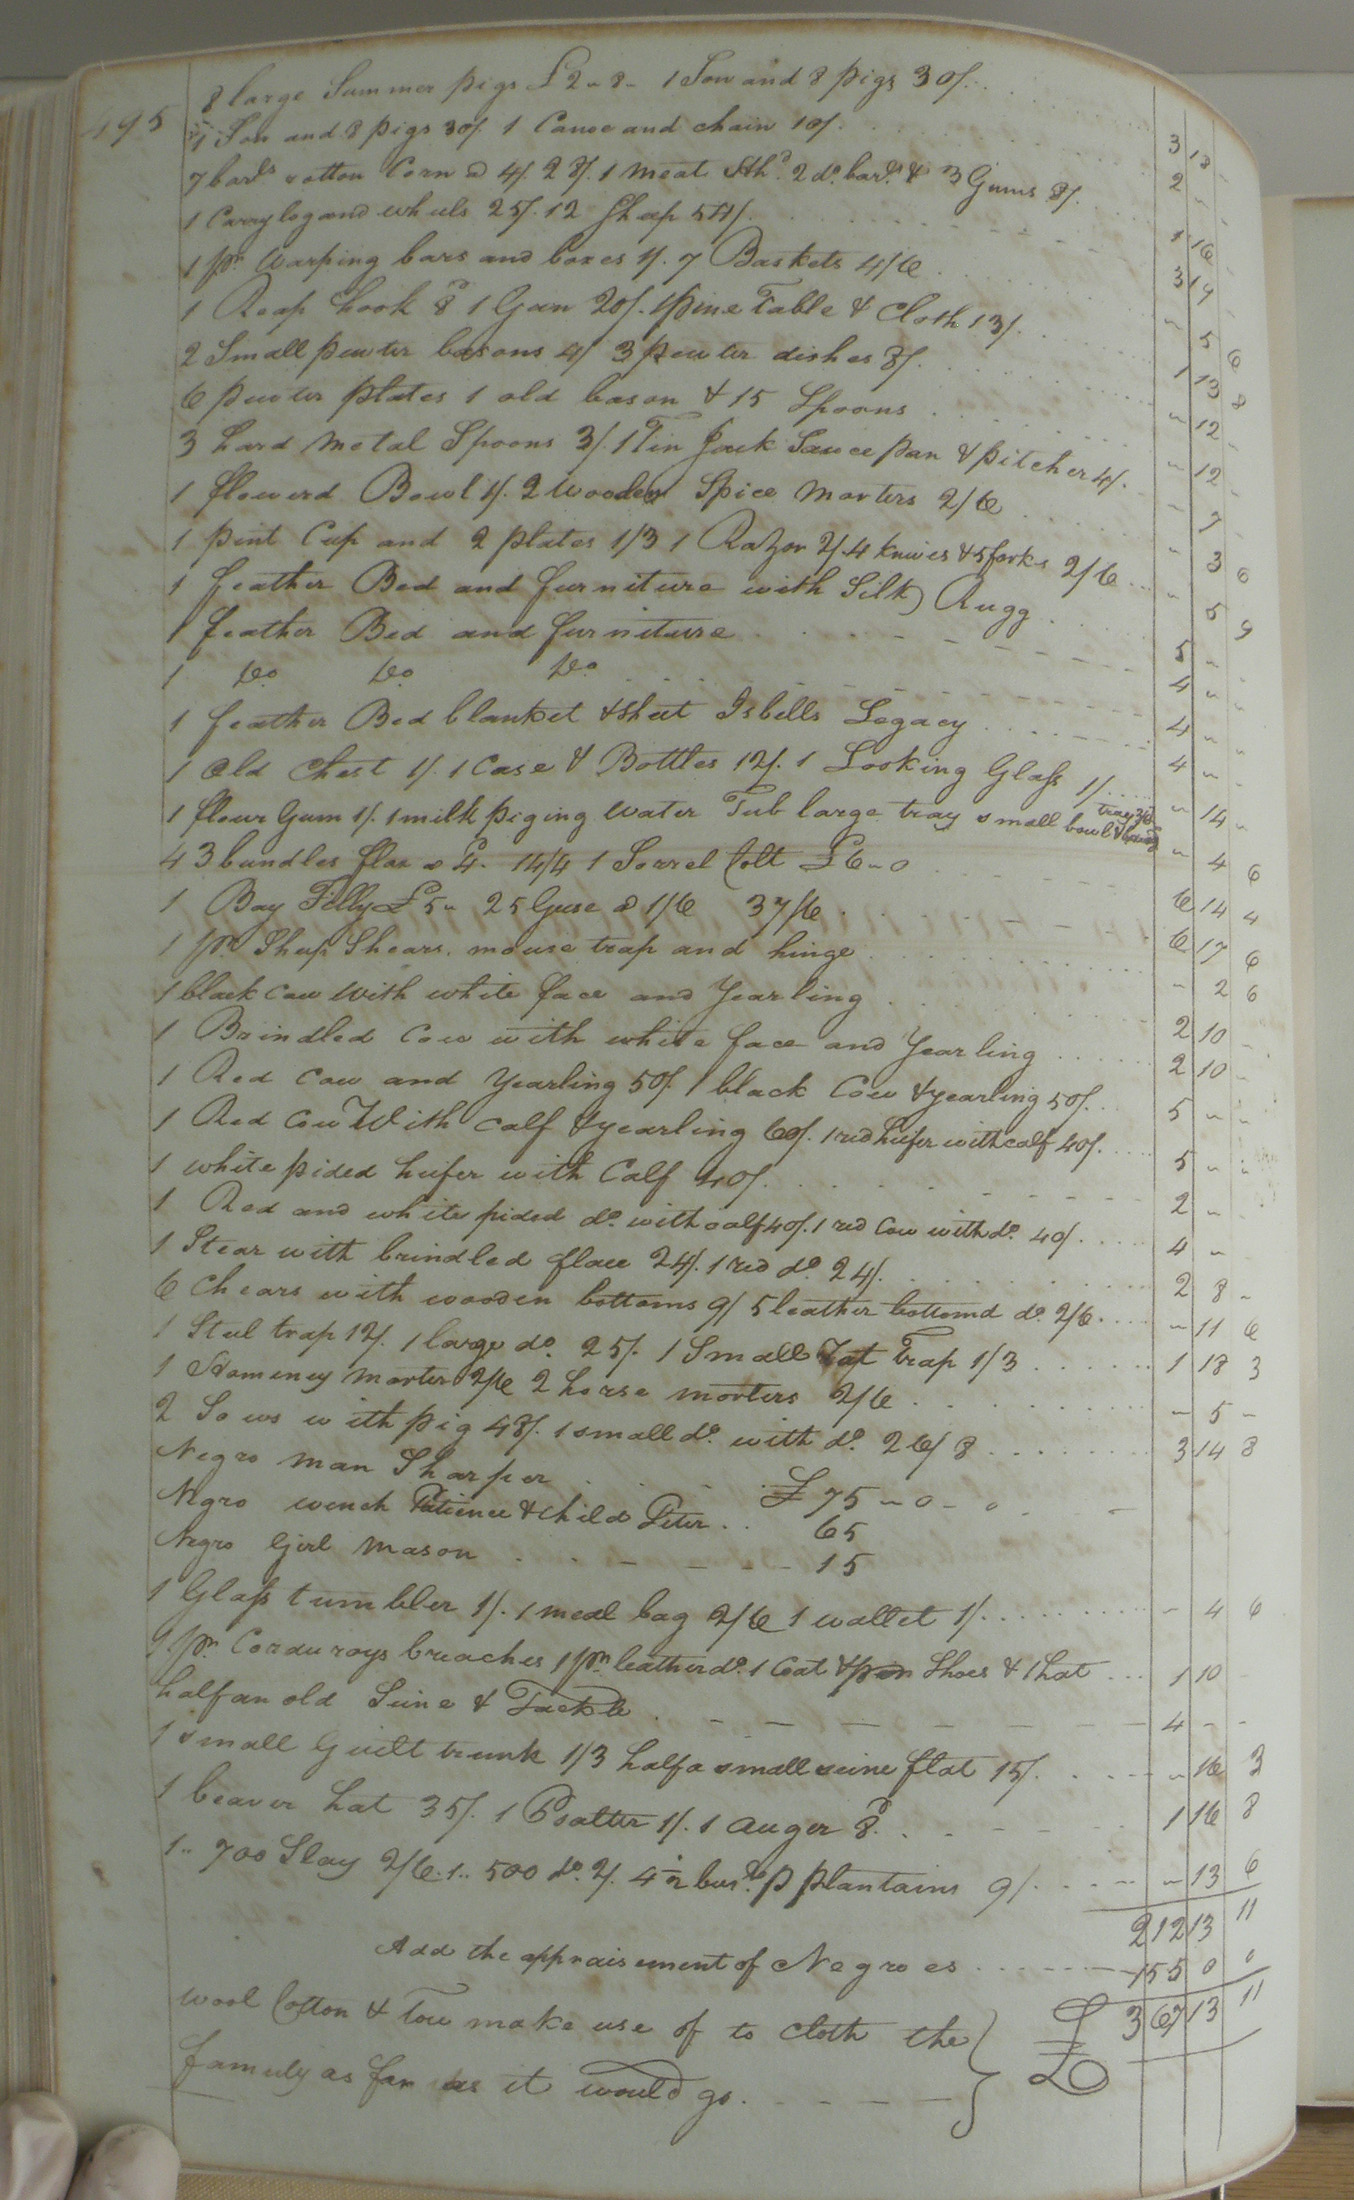 495
8 large Summer pigs £2 " 8 - 1 Sow and 8 pigs 30/. 3 18 -
1 Sow and 8 pigs 30/. 1 Canoe and chain 10/. 2 - -
7 barls rotten Corn @ 4/. 28/. 1 meat 2 do. barls & 3 Gums 8/. 1 16 -
1 Carrylog and wheels 25/. 12 Sheep 54/. 3 19 -
1 pr. Warping bars and boxes 1/. 7 Baskets 4/6 " 5 6
1 Reap hook 8d 1 Gun 20/. 1 pine Table & Cloth 13/. 1 13 8
2 Small pewter basons 4/ 3 pewter dishes 8/. " 12 -
6 pewter plates 1 old bason & 15 Spoons " 12 -
3 hard metal Spoons 3/. 1 Tin Jack Sauce pan & pitcher 4/. - 7 -
1 flowerd Bowl 1/. 2 wooden Spice morters 2/6 " 3 6
1 pint Cup and 2 plates 1/3 1 Razor 2/. 4 knives & 5 forks 2/6 " 5 9
1 feather Bed and furniture with Silk Rugg 5 " -
1 feather Bed and furniture 4 " -
1 Do. Do. Do. 4 " "
1 feather Bed blanket & sheet Isbells Legacy 4 " -
1 old chest 1/. 1 Case & Bottles 12/. 1 Looking Glass 1/. " 14 "
1 flour Gum 1/. 1 milk piging water Tub large tray small bowl tray 3/6 " 4 6
43 bundles flax @ 4d. 14/4 1 Sorrel Colt £6 " 0 6 14 4
1 Bay Filly £5 " 25 Guse @ 1/6 37/6 6 17 6
1 pr. Sheep Shears. mouse trap and hinge - 2 6
1 black cow with white face and Yearling 2 10 -
1 Brindled Cow with white face and Yearling 2 10 -
1 Red Cow and Yearling 50/. 1 black Cow & yearling 50/. 5 " "
1 Red Cow With calf & yearling 60/. 1 red heifer with calf 40/. 5 " "
1 white pided heifer with Calf 40/. 2 "
1 Red and white pided do. with calf 40/. 1 red Cow with do. 40/. 4 "
1 Stear with brindled face 24/. 1 red do. 24/. 2 8 -
6 Chears with wooden bottoms 9/ 5 leather bottomd do. 2/6 " 11 6
1 Steel trap 12/. 1 large do. 25/. 1 Small Rat Trap 1/3 1 18 3
1 Homeney Morter 2/6 2 horse morters 2/6 - 5 -
2 Sows with pig 48/. 1 small do. with do. 26/8 3 14 8
Negro man Sharper £75 " 0 - 0
Negro wench Patience & child Peter 65
Negro Girl Mason 15
1 Glass tumbler 1/. 1 meal bag 2/6 1 wallet 1/. - 4 6
1 pr. Corduroys breaches 1 pr. leather do. 1 Coat & pr Shoes & 1 hat 1 10 -
half an old Seine & Tackle 4 - -
1 small Guilt trunk 1/3 half a small seine flat 15/. " 16 3
1 beaver hat 35/. 1 Psalter 1/. 1 auger 8d. 1 16 8
1 .. 700 Slay 2/6. 1 .. 500 do. 2/. 4½ busls. p plantains 9/. " 13 6
212 13 11
Add the appraisement of Negroes 155 0 0
£ 367 13 11
wool Cotton & Tow make use of to cloth the
famuly as far as it would go.